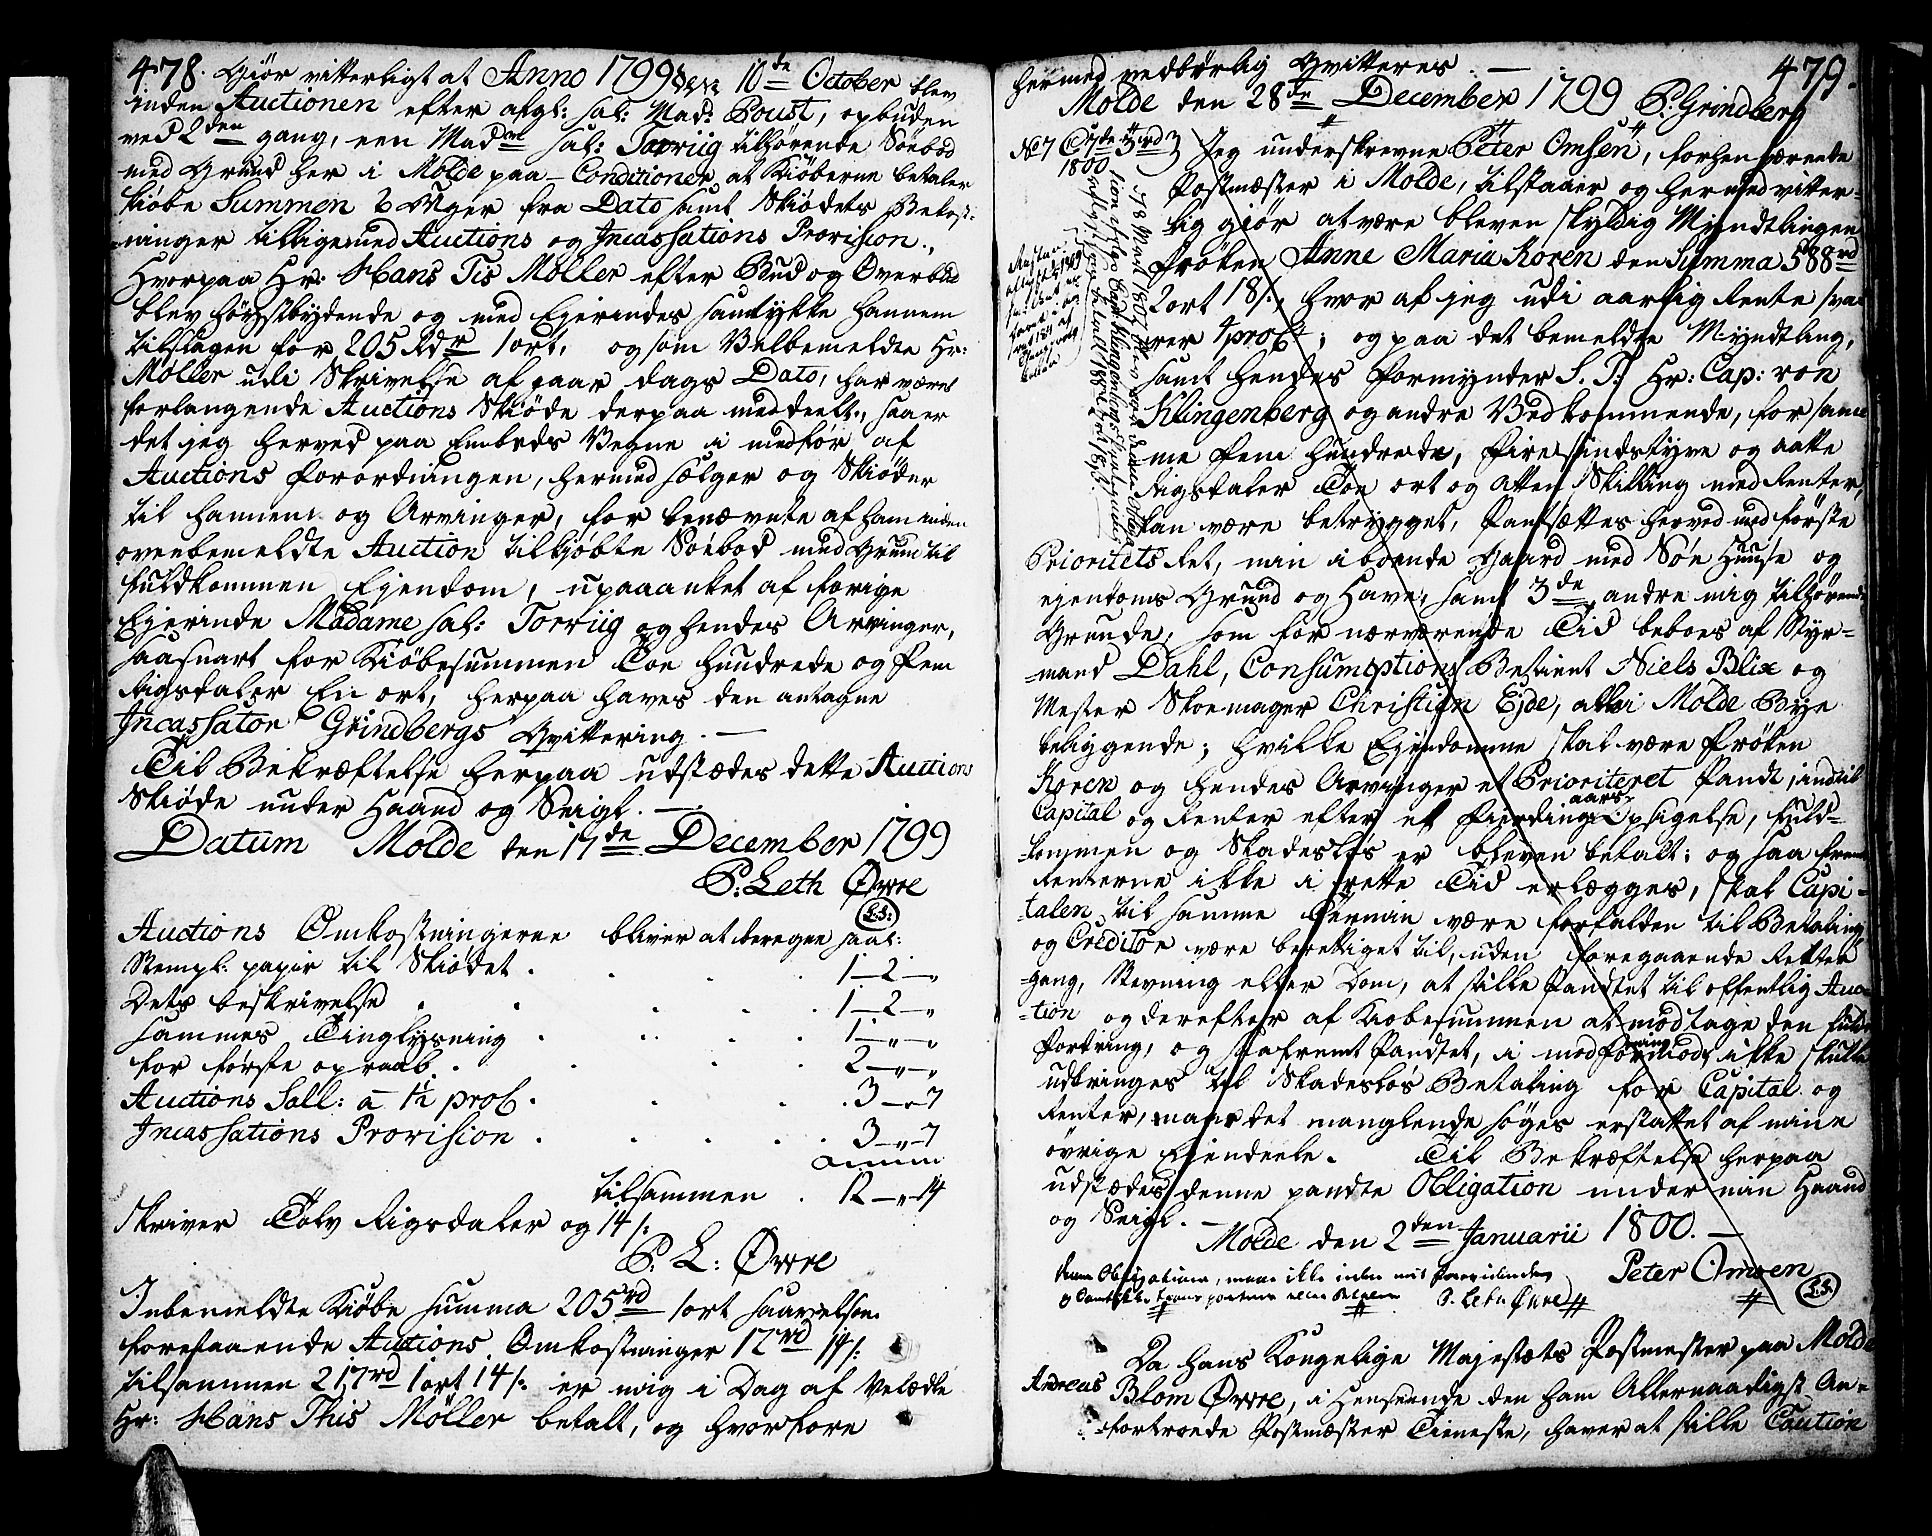 478.
Giør vitterligt at Anno 1799 den 10de October blev
inden Auctionen efter afgl: sal: Mad: Poust, opbuden
ved 2den gang, een Madme sal: Torriig tilhørende Søebod
med Grund her i Molde paa Conditioner at Kiøberne betaler
Kiøbe Summen 6 Uger fra Dato samt Skiødets Bekost-
ninger tilligemed Auctions og Incassations Provision.,
Hvorpaa Hr: Hans Tis Möller efter Bud og Overbud
blev høystbydende og med Ejerindes samtykke hannem
tilslagen for 205 Rdr 1 ort, og som Velbemeldte Hr:
Möller udi Skrivelse af paar dags Dato, har været
forlangende Auctions Skiøde derpaa meddeelt., saa er
det jeg herved paa Embeds Vegne i medfør af
Auctions Forordningen, hermed sælger og Skiøder
til hannem og Arvinger, for benævnte af ham inden
ovenbemeldte Auction tilkjøbte Søebod med Grund til
fuldkommen Ejendom, upaaanket af forige
Ejerinde Madame sal: Torriig og hendes Arvinger,
saasnart for Kiøbesummen Toe Hundrede og Fem
Rigsdaler En ort, herpaa haves den antagne
Incassator Grindbergs Qvittering. —
Til Bekræftelse herpaa udstædes dette Auctions
Skiøde under Haand og Seigl. —
Datum Molde den 17de December 1799
P: Leth Øvre
L:S:
Auctions Omkostningerne bliver at beregne saal:
Stempl: papir til Skiødet . . . 1—2—„
Dets beskrivelse . . . 1—2—„
Sammes Tinglysning . . . 1—„—„
for første opraab . . . 2—„—„
Auctions Sall: a 1½ proC . . . 3—„—7
Incassations Provision . . . 3—„—7
tilsammen . 12—„—14
skriver Tolv Rigsdaler og 14 s:
P: L: Øvre
Inbemeldte Kiøbe Summa 205rd 1 ort saavelsom
forestaaende Auctions Omkostninger 12rd 14 s:
tilsammen 217rd 1 ort 14 s: er mig i Dag af Velædle
Hr: Hans This Möller betalt, og hvorfore
479.
hermed vedbørlig Qvitteres. —
Molde den 28de December 1799 P: Grindberg
No 7
1800
Jeg underskrevne Peter Omsen, forhenværende
Postmæster i Molde, tilstaaer og hermed vitter-
lig giør at være bleven skyldig Myndtlingen
Frøken Anne Maria Koren den Summa 588rd
2 ort 18 s:, hvor af jeg udi aarlig Rente sva-
rer 4 proCt; og paa det bemeldte Myndtling,
samt hendes Formynder S. T: Hr: Cap: von
Klingenberg og andre Vedkommende, for sam-
me Fem hundrede, Firesindstyve og aatte
Rigsdaler Toe ort og Atten Skilling med Renter,
kan være betrygget, Pantsættes herved med første
Prioritets Ret, min iboende Gaard med Søe Huuse og
ejendoms Grund og Have, samt 3de andre mig tilhørende
Grunde, som for nærværende Tid beboes af Styr-
mand Dahl, Consumptions Betient Niels Blix og
Mester Skoemager Christian Ejde, alt i Molde Bye
beliggende; hvilke Ejendomme skal være Frøken
Koren og hendes Arvinger et Prioriteret Pandt, indtil
Capital og Renter efter et Fierding aars Opsigelse, fuld-
kommen og Skadesløs er bleven betalt: og saa fremt
Renterne ikke i rette Tid erlægges, skal Capi-
talen til samme Termin være forfalden til Betaling
og Creditor være berettiget til, uden foregaaende Retter-
gang, Stevning eller Dom, at stille Pandtet til offentlig Auc-
tion og derefter af Kiøbesummen at modtage den fulde
Fordring, og saafremt Pandtet, i mod formodning ikke skulle
udbringes til Skadesløs Betaling for Capital og
Renter, maae det manglende søges erstattet af mine
øvrige Ejendeele. Til Bekræftelse herpaa
udstædes denne pandte Obligation under min Haand
og Seigl. —
Molde den 2den Januarii 1800. —
Peter Omsen
L:S:
denne Obligation, maae ikke uden mit Forevidende
P. Leth Øvre
Da hans Kongelige Majestæts Postmester paa Molde
Andreas Blom Øvre, i Henseende den ham Allernaadigst An-
fortroede Postmæster Tieneste, haver at stille Caution